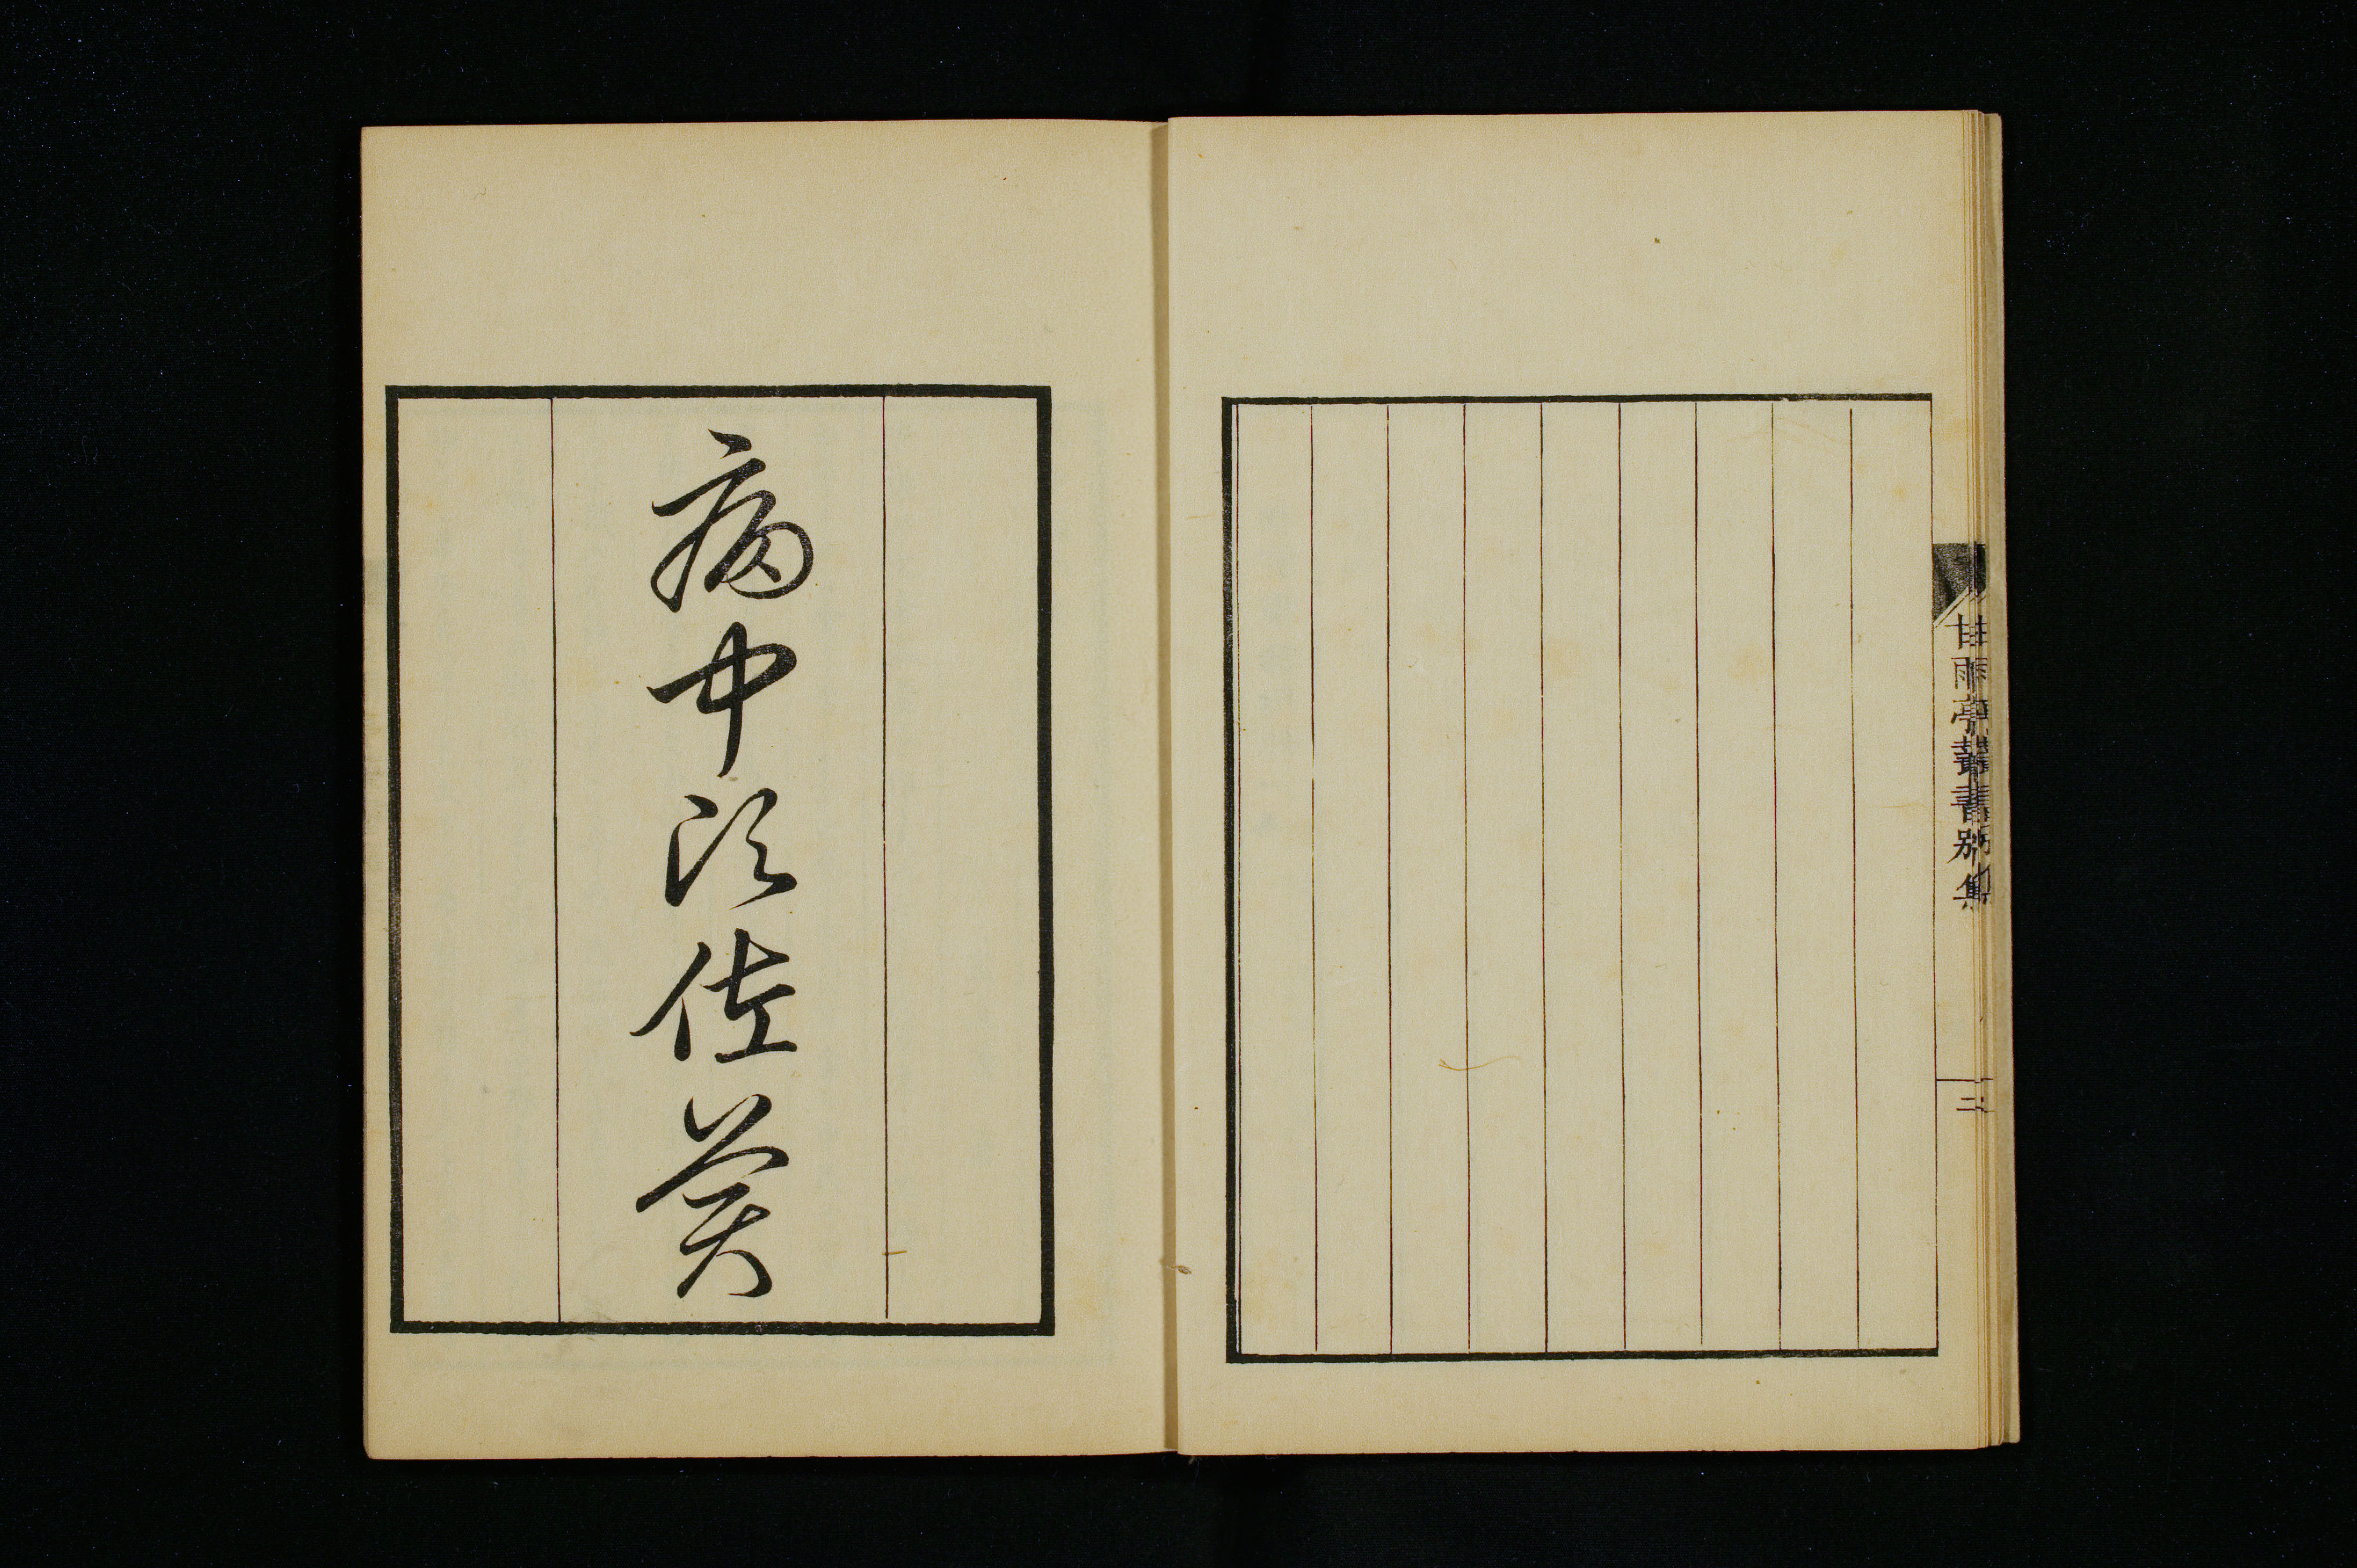 甘雨亭叢書別集
二
病中須佐美